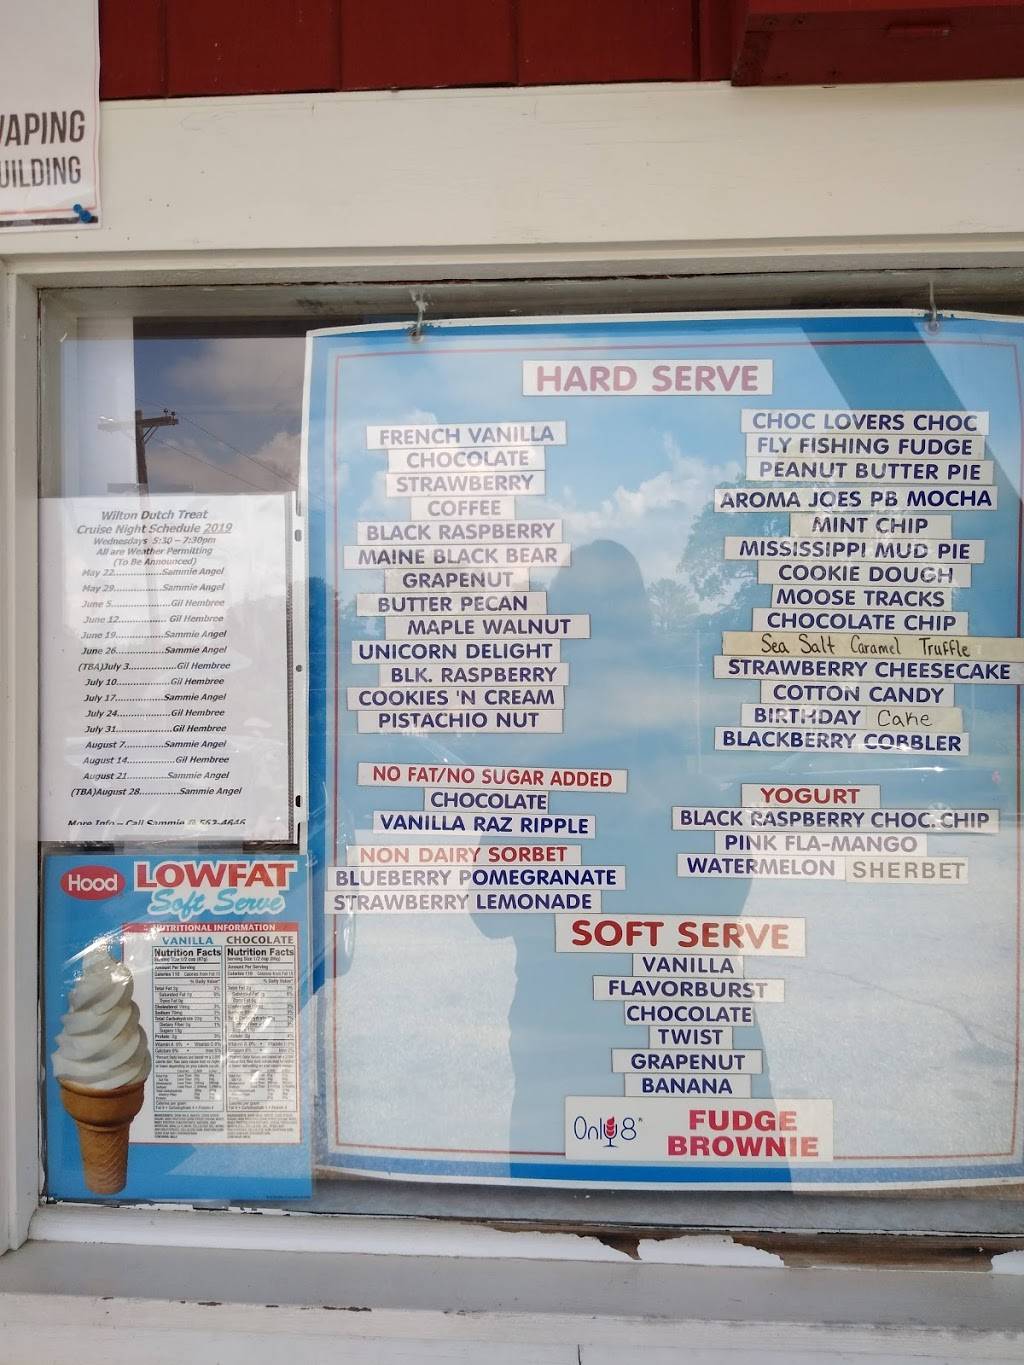 VAPING
UILDING
Wilton Dutch Treat
Cruise Night Schedule 2019
Wednesdays 5:30 – 7:30pm
All are Weather Permitting
(To Be Announced)
May 22..............Sammie Angel
May 29..............Sammie Angel
June 5..............Gil Hembree
June 12.............. Gil Hembree
June 19..............Sammie Angel
June 26..............Sammie Angel
(TBA)July 3..............Gil Hembree
July 10..............Gil Hembree
July 17..............Sammie Angel
July 24..............Gil Hembree
July 31..............Gil Hembree
August 7..............Sammie Angel
August 14..............Gil Hembree
August 21..............Sammie Angel
(TBA)August 28..............Sammie Angel
More Info – Call Sammie @ 562-4646
Hood LOWFAT
Soft Serve
NUTRITIONAL INFORMATION
VANILLA CHOCOLATE
Nutrition Facts Nutrition Facts
HARD SERVE
FRENCH VANILLA
CHOCOLATE
STRAWBERRY
COFFEE
BLACK RASPBERRY
MAINE BLACK BEAR
GRAPENUT
BUTTER PECAN
MAPLE WALNUT
UNICORN DELIGHT
BLK. RASPBERRY
COOKIES 'N CREAM
PISTACHIO NUT
CHOC LOVERS CHOC
FLY FISHING FUDGE
PEANUT BUTTER PIE
AROMA JOES PB MOCHA
MINT CHIP
MISSISSIPPI MUD PIE
COOKIE DOUGH
MOOSE TRACKS
CHOCOLATE CHIP
Sea Salt Caramel Truffle
STRAWBERRY CHEESECAKE
COTTON CANDY
BIRTHDAY Cake
BLACKBERRY COBBLER
NO FAT/NO SUGAR ADDED
CHOCOLATE
VANILLA RAZ RIPPLE
NON DAIRY SORBET
BLUEBERRY POMEGRANATE
STRAWBERRY LEMONADE
YOGURT
BLACK RASPBERRY CHOC. CHIP
PINK FLA-MANGO
WATERMELON SHERBET
SOFT SERVE
VANILLA
FLAVORBURST
CHOCOLATE
TWIST
GRAPENUT
BANANA
Only 8
FUDGE
BROWNIE